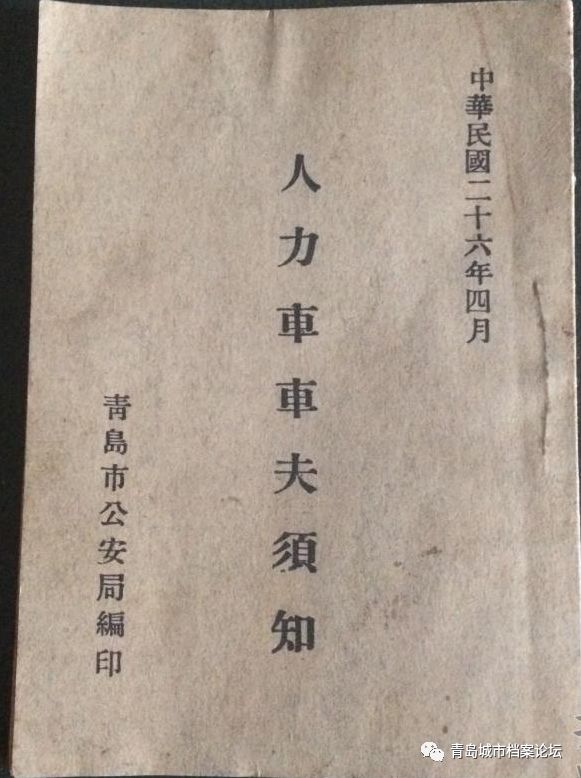 中華民國二十六年四月
人力車車夫須知
青島市公安局編印
青岛城市档案论坛